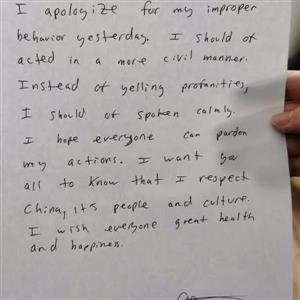 I apologize for my improper
behavior yesterday. I should of
acted in a more civil manner.
Instead of yelling profanities,
I should of spoken calmly.
I hope everyone can pardon
my actions. I want you
all to know that I respect
China, its people and culture.
I wish everyone great health
and happiness.